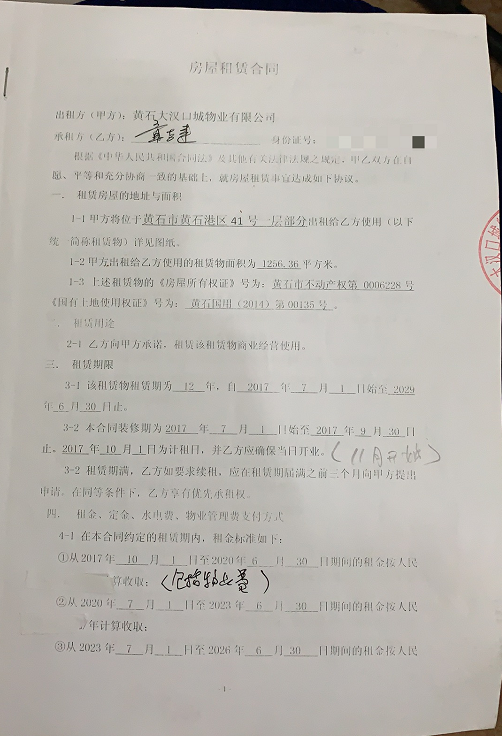 房屋租赁合同
出租方（甲方）：黄石大汉口城物业有限公司
承租方（乙方）： 身份证号：
根据《中华人民共和国合同法》及其他有关法律法规之规定，甲乙双方在自
愿、平等和充分协商一致的基础上，就房屋租赁事宜达成如下协议。
一． 租赁房屋的地址与面积
1-1 甲方将位于黄石市黄石港区 41 号一层部分出租给乙方使用（以下
统一简称租赁物）详见图纸。
1-2 甲方出租给乙方使用的租赁物面积为 1256.36 平方米。
1-3 上述租赁物的《房屋所有权证》号为：黄石市不动产权第 0006228 号
《国有土地使用权证》号为： 黄石国用（2014）第 00135 号 。
二． 租赁用途
2-1 乙方向甲方承诺，租赁该租赁物商业经营使用。
三． 租赁期限
3-1 该租赁物租赁期为 12 年，自 2017 年 7 月 1 日始至 2029
年 6 月 30 日止。
3-2 本合同装修期为 2017 年 7 月 1 日始至 2017 年 9 月 30 日
止。2017 年 10 月 1 日为计租日，并乙方应确保当日开业。（11月开始）
3-2 租赁期满，乙方如要求续租，应在租赁期届满之前三个月向甲方提出
申请。在同等条件下，乙方享有优先承租权。
四． 租金、定金、水电费、物业管理费支付方式
4-1 在本合同约定的租赁期内，租金标准如下：
①从 2017 年 10 月 1 日至 2020 年 6 月 30 日期间的租金按人民
算收取：（包括物业费）
②从 2020 年 7 月 1 日至 2023 年 6 月 30 日期间的租金按人民
/年计算收取；
③从 2023 年 7 月 1 日至 2026 年 6 月 30 日期间的租金按人民
1